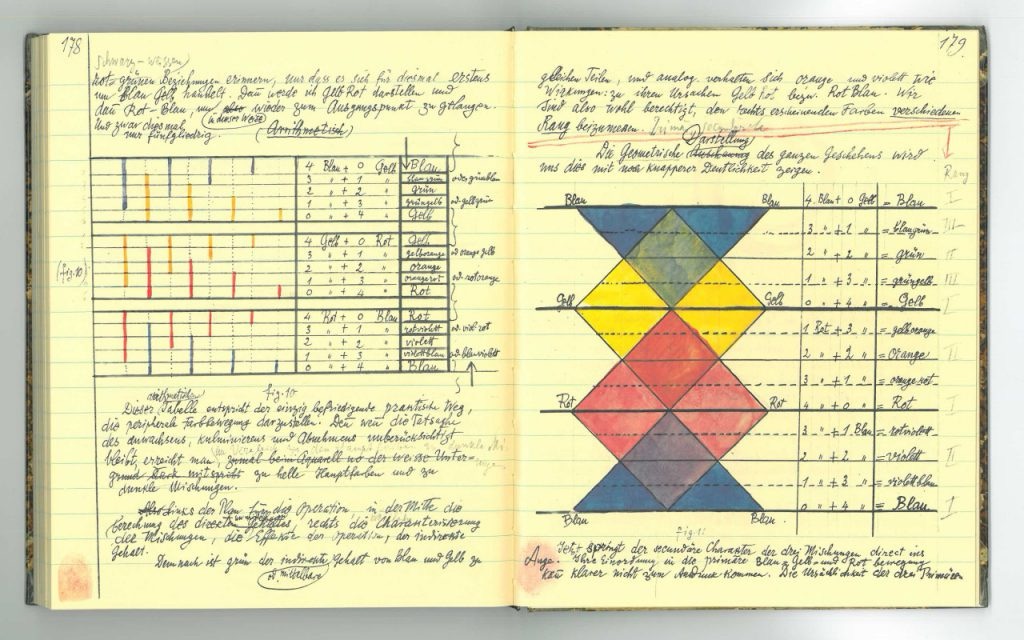 178
Schwarz-weissen
rot-grünen Beziehungen erinnern, nur dass es sich für diesmal erstens
um Blau Gelb handelt. Dann werde ich Gelb Rot darstellen und
dann Rot-Blau, um wieder zum Ausgangspunkt zu gelangen.
in dieser Weise
Und zwar diesmal (Arithmetisch)
nur fünfgliedrig.
4 Blau + 0 Gelb Blau
3 " + 1 " blaugrün od. grünblau
2 " + 2 " Grün
1 " + 3 " grüngelb od. gelbgrün
0 " + 4 " Gelb
4 Gelb + 0 Rot Gelb
3 " + 1 " gelborange od. orangegelb
2 " + 2 " orange
1 " + 3 " orangerot od. rotorange
0 " + 4 " Rot
(fig. 10)
4 Rot + 0 Blau Rot
3 " + 1 " rotviolett od. viol. rot
2 " + 2 " violett
1 " + 3 " violettblau od. blauviolett
0 " + 4 " Blau
fig. 10
arithmetische
Dieser Tabelle entspricht der einzig befriedigende praktische Weg,
die peripherale Farbbewegung darzustellen. Denn wenn die Tatsache
des anwachsens, kulminierens und Abnehmens unberücksichtigt
bleibt, erreicht man, zumal beim Aquarell wo der weisse Unter-
grund stark mitspricht zu helle Hauptfarben und zu
dunkle Mischungen.
Links der Plan für die Operation, in der Mitte die
berechnung des directen Gehaltes, rechts die Charakterisierung
der Mischungen, die Effekte der Operation, der indirecte
Gehalt.
Demnach ist grün der indirecte Gehalt von Blau und Gelb zu
od. mittelbare
179
gleichen Teilen, und analog verhalten sich orange und violett wie
Wirkungen zu ihren Ursachen Gelb Rot bezw. Rot Blau. Wir
sind also wohl berechtigt, den rechts erscheinenden Farben verschiedenen
Rang beizumessen.
Darstellung
Die Geometrische des ganzen Geschehens wird
uns dies mit noch knapperer Deutlichkeit zeigen.
Rang
Blau Blau 4 Blau + 0 Gelb = Blau I
3 " + 1 " = blaugrün III
2 " + 2 " = grün II
1 " + 3 " = grüngelb III
Gelb Gelb 0 " + 4 " = Gelb I
1 Rot + 3 " = gelborange
2 " + 2 " = Orange II
3 " + 1 " = orangerot
Rot Rot 4 " + 0 " = Rot I
3 " + 1 Blau = rotviolett
2 " + 2 " = violett II
1 " + 3 " = violettblau
Blau Blau 0 " + 4 " = Blau I
fig. 11
Jetzt springt der secundäre Charakter der drei Mischungen direct ins
Auge. Ihre Einordnung in die primäre Blau-Gelb und Rot bewegung
kann klarer nicht zum Ausdruck kommen. Die Ursächlichkeit der drei Primären